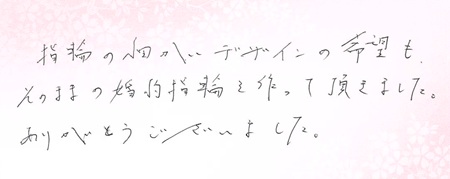 指輪の細かいデザインの希望も、
そのままの婚約指輪を作って頂きました。
ありがとうございました。